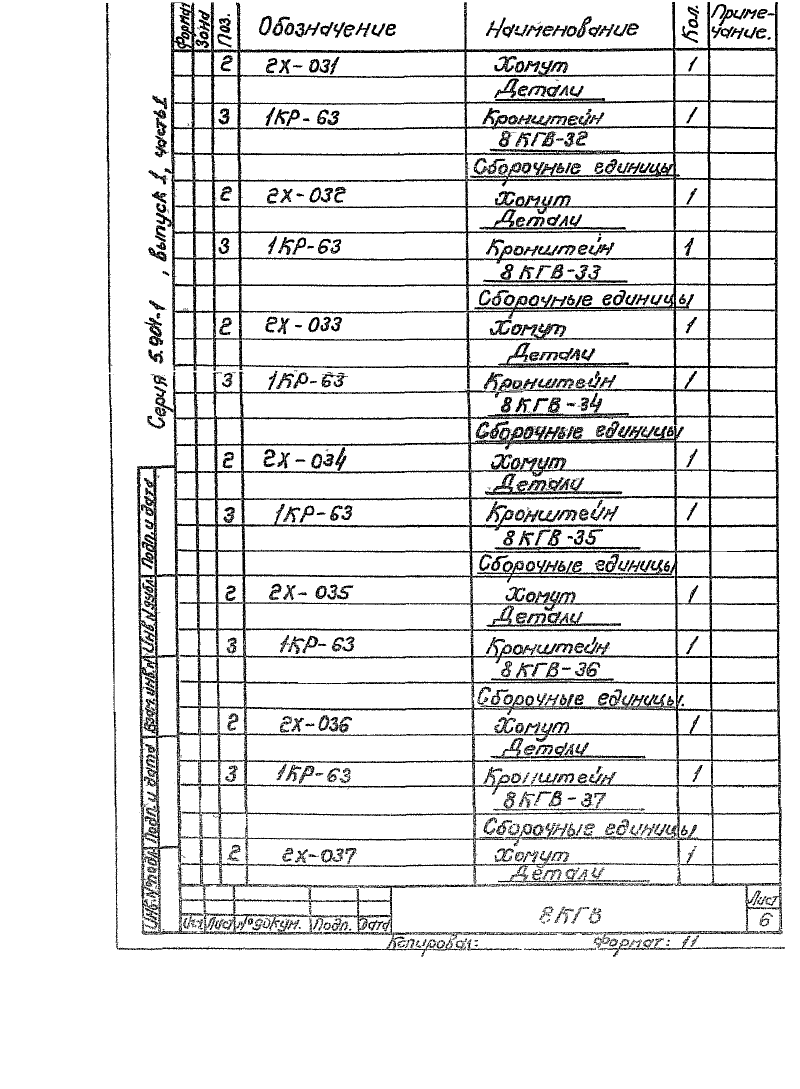 Формат Зона Поз. Обозначение Наименование Кол. Приме-чание.
2 2Х-031 Хомут 1
Детали
3 1КР-63 Кронштейн 1
8КГВ-32
Сборочные единицы
2 2Х-032 Хомут 1
Детали
3 1КР-63 Кронштейн 1
8КГВ-33
Сборочные единицы
2 2Х-033 Хомут 1
Детали
3 1КР-63 Кронштейн 1
8КГВ-34
Сборочные единицы
2 2Х-034 Хомут 1
Детали
3 1КР-63 Кронштейн 1
8КГВ-35
Сборочные единицы
2 2Х-035 Хомут 1
Детали
3 1КР-63 Кронштейн 1
8КГВ-36
Сборочные единицы.
2 2Х-036 Хомут 1
Детали
3 1КР-63 Кронштейн 1
8КГВ-37
Сборочные единицы
2 2Х-037 Хомут 1
Детали
Серия 5.904-1 , выпуск 1, часть 1
Инв.№подл. Подп. и дата Взам.инв.№ Инв.№дубл. Подп. и дата
Лист №докум. Подп. Дата
8КГВ
Лист
6
Копировал: Формат: 11